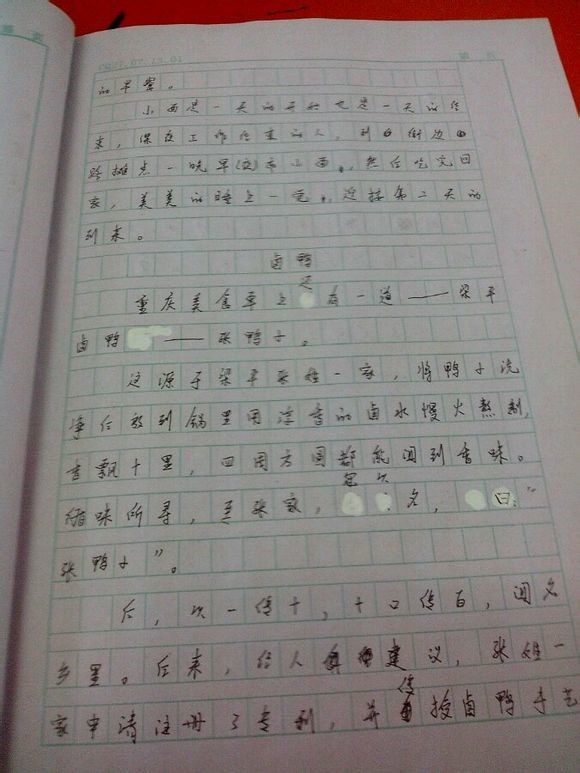 的早餐。
小面是一天的开始也是一天的结
束，深夜工作结束的人，到街边
路摊点一晚早(夜)市小面，然后吃完回
家，美美的睡上一觉，迎接第二天的
到来。
卤鸭
重庆美食草上还有一道——梁平
卤鸭——张鸭子。
这源于梁平张姓一家，将鸭子洗
净后放到锅里用浓香的卤水慢火熬制，
香飘十里，四周方圆都能闻到香味。
循味所寻，至张家，冠以名，曰："
张鸭子"。
后，次一传十，十口传百，闻名
乡里。后来，给人建议，张姓一
家申请注册了专利，并传授卤鸭手艺